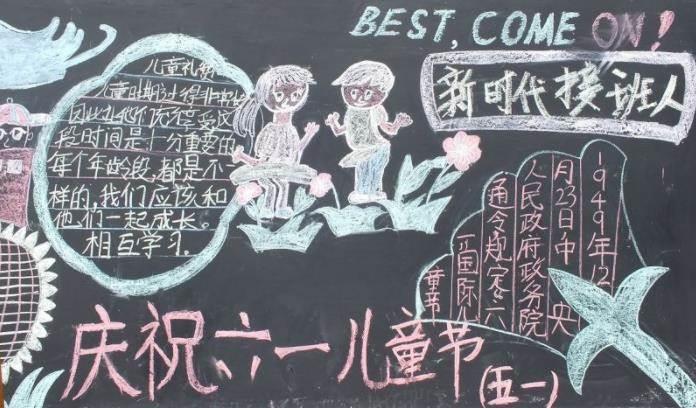 BEST, COME ON!
新时代接班人
儿童礼
儿童时期过得非常
段时间是十分重要的
每个年龄段,都是不
样的,我们应该和
他们一起成长。
相互学习。
1949年12
月23日中央
人民政府政务院
通令规定六
一国际儿
童节
庆祝六一儿童节
(五一)